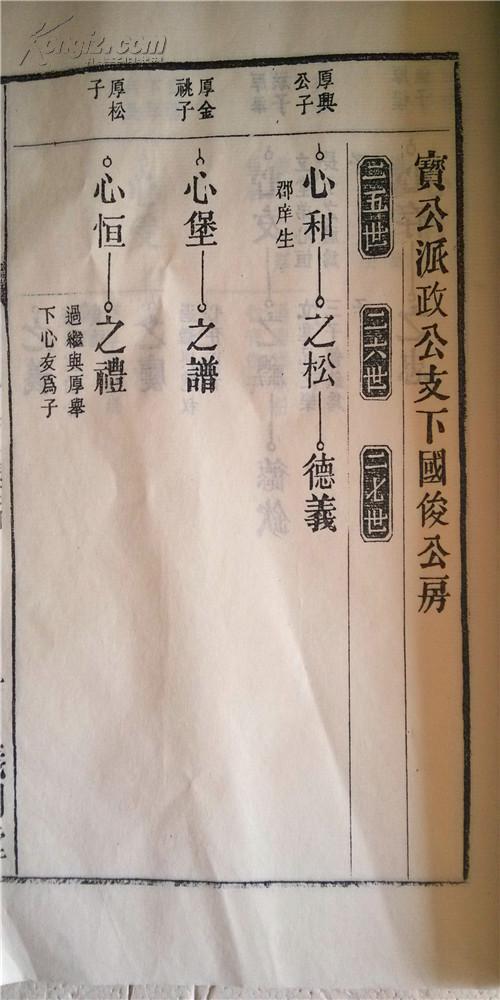 寶公派政公支下國俊公房
二五世
二六世
二七世
厚興
公子
心和
郡庠生
之松
德義
厚金
祧子
心堡
之譜
厚松
子
心恒
之禮
過繼與厚舉
下心友爲子
Kongfz.com